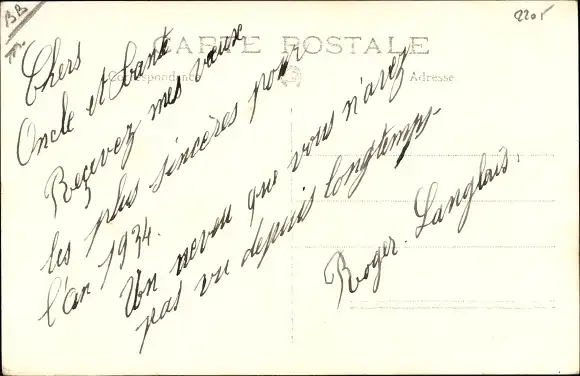 BB
m.
2205
CARTE POSTALE
Correspondance
Adresse
Chers
Oncle et Tante
Recevez mes vœux
les plus sincères pour
l'an 1934.
Un neveu que vous n'avez
pas vu depuis longtemps.
Roger Langlais.